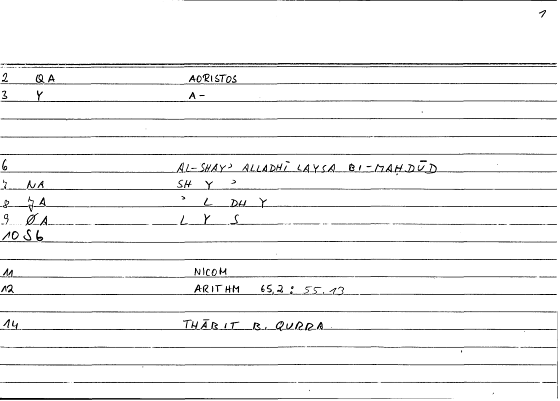 1
2 QA AORISTOS
3 Y A-
6 AL-SHAYʾ ALLADHĪ LAYSA BI-MAḤDŪD
7 NA SH Y ʾ
8 7A ʾ L DH Y
9 ØA L Y S
10 S6
11 NICOM
12 ARITHM 65,2 : 55.13
14 THĀBIT B. QURRA